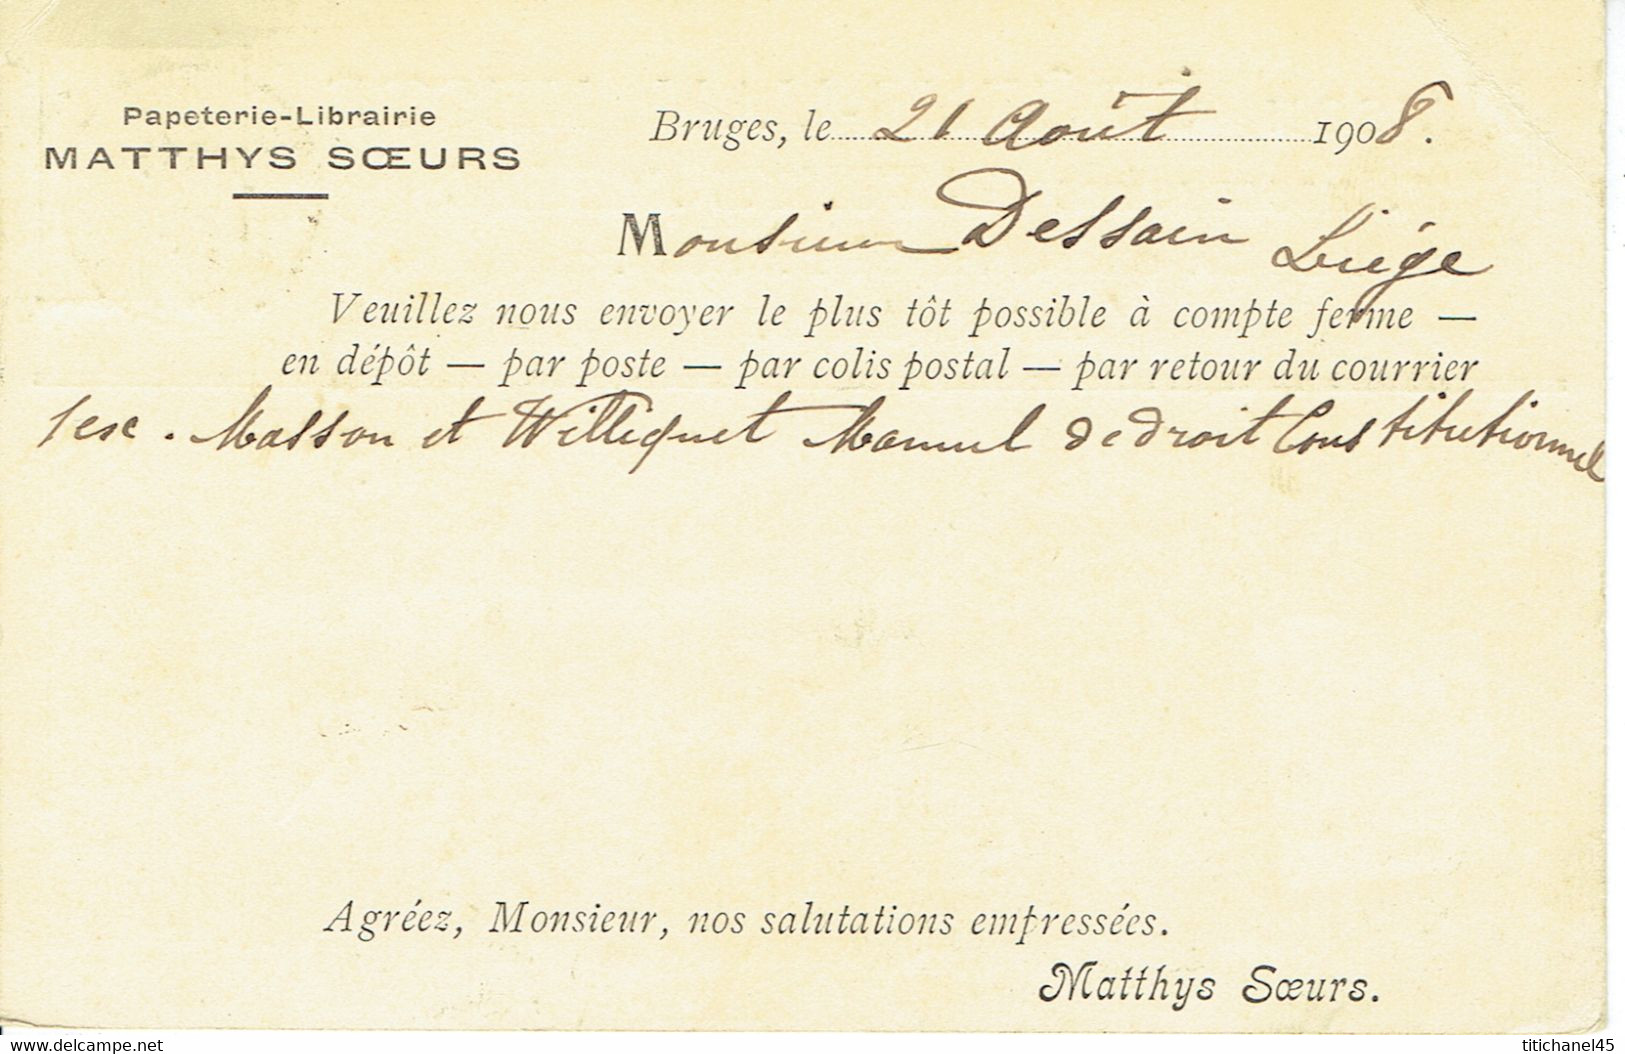 Papeterie-Librairie
MATTHYS SŒURS
Bruges, le 21 Août 1908.
Monsieur Dessain Liége
Veuillez nous envoyer le plus tôt possible à compte ferme —
en dépôt — par poste — par colis postal — par retour du courrier
1 ex. Masson et Williquet Manuel de droit Constitutionnel
Agréez, Monsieur, nos salutations empressées.
Matthys Sœurs.
www.delcampe.net
titichanel45